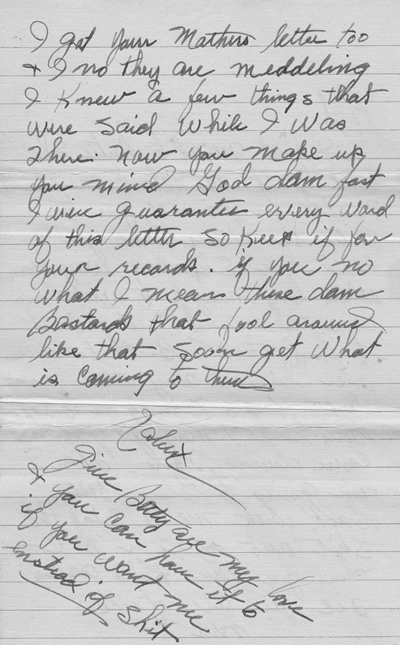 I got your Mathers letter too
& I no they are meddeling
I Knew a few things that
were said while I was
there. Now you make up
you mind God dam fast
I will guarantee every word
of this letter so Keep it for
your records. if you no
what I mean these dam
Bastards that fool around
like that soon get what
is coming to them
Robert
Give Betty all my love
& you can have it to
if you want me
instead of shit